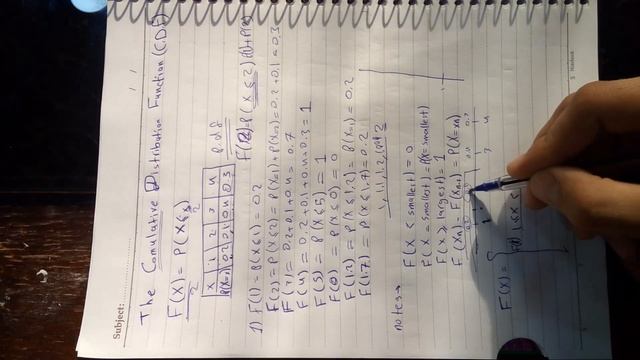 Subject:
The Comulative Distribution Function (C.D.F)
F(X) = P(X ≤ x)
X 1 2 3 4
P(X=x) 0.2 0.1 0.4 0.3
p.d.f
1) F(1) = P(X ≤ 1) = 0.2
F(2) = P(X ≤ 2)
F(2) = P(X ≤ 2) = P(X=1) + P(X=2) = 0.2 + 0.1 = 0.3
F(3) = 0.2 + 0.1 + 0.4 = 0.7
F(4) = 0.2 + 0.1 + 0.4 + 0.3 = 1
F(5) = P(X ≤ 5) = 1
F(0) = P(X ≤ 0) = 0
F(1.2) = P(X ≤ 1.2) = P(X=1) = 0.2
F(1.7) = P(X ≤ 1.7) = 0.2
notes→
F(X < smallest) = 0
F(X = smallest) = P(X = smallest)
F(X ≥ largest) = 1
F(Xn) - F(Xn-1) = P(X=xn)
3 4
F(X) =